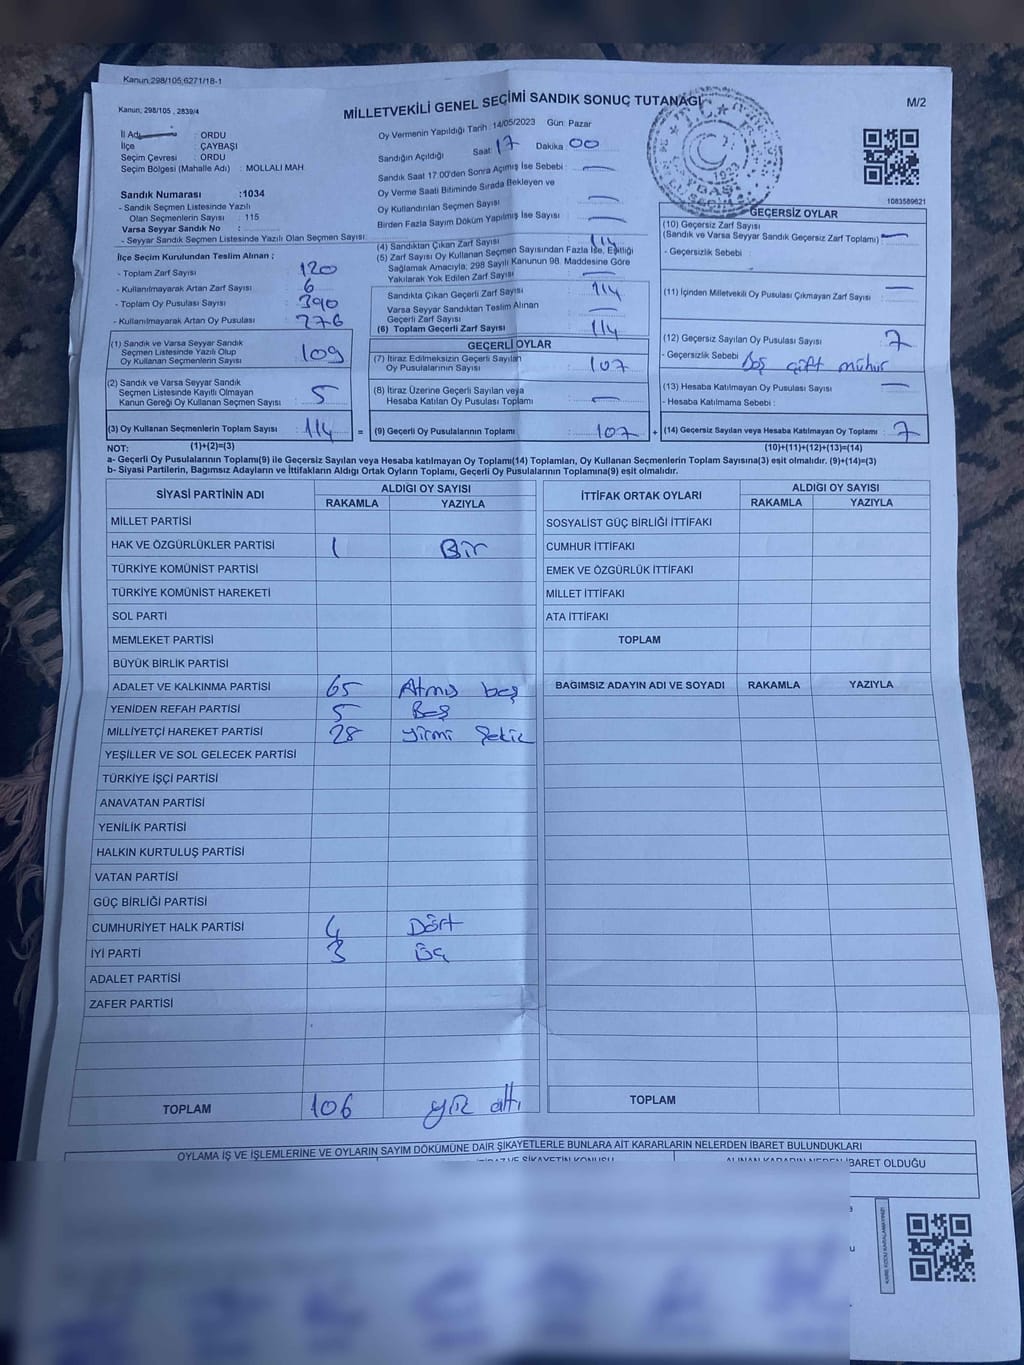 Kanun,298/105,6271/18-1
Kanun, 298/105 , 2839/4
MİLLETVEKİLİ GENEL SEÇİMİ SANDIK SONUÇ TUTANAĞI
M/2
İl Adı : ORDU
İlçe : ÇAYBAŞI
Seçim Çevresi : ORDU
Seçim Bölgesi (Mahalle Adı) : MOLLALI MAH
Sandık Numarası :1034
- Sandık Seçmen Listesinde Yazılı
Olan Seçmenlerin Sayısı : 115
Varsa Seyyar Sandık No :
- Seyyar Sandık Seçmen Listesinde Yazılı Olan Seçmen Sayısı:
İlçe Seçim Kurulundan Teslim Alınan ;
- Toplam Zarf Sayısı : 120
- Kullanılmayarak Artan Zarf Sayısı : 6
- Toplam Oy Pusulası Sayısı : 390
- Kullanılmayarak Artan Oy Pusulası : 276
(1) Sandık ve Varsa Seyyar Sandık
Seçmen Listesinde Yazılı Olup
Oy Kullanan Seçmenlerin Sayısı : 109
(2) Sandık ve Varsa Seyyar Sandık
Seçmen Listesinde Kayıtlı Olmayan
Kanun Gereği Oy Kullanan Seçmen Sayısı : 5
(3) Oy Kullanan Seçmenlerin Toplam Sayısı : 114 =
Oy Vermenin Yapıldığı Tarih :14/05/2023 Gün: Pazar
Sandığın Açıldığı Saat : 17 Dakika : 00
Sandık Saat 17:00'den Sonra Açımış İse Sebebi : —
Oy Verme Saati Bitiminde Sırada Bekleyen ve
Oy Kullandırılan Seçmen Sayısı : —
Birden Fazla Sayım Döküm Yapılmış İse Sayısı : —
(4) Sandıktan Çıkan Zarf Sayısı : 114
(5) Zarf Sayısı Oy Kullanan Seçmen Sayısından Fazla İse, Eşitliği
Sağlamak Amacıyla; 298 Sayılı Kanunun 98. Maddesine Göre
Yakılarak Yok Edilen Zarf Sayısı : —
Sandıkta Çıkan Geçerli Zarf Sayısı : 114
Varsa Seyyar Sandıktan Teslim Alınan
Geçerli Zarf Sayısı : —
(6) Toplam Geçerli Zarf Sayısı : 114
GEÇERLİ OYLAR
(7) İtiraz Edilmeksizin Geçerli Sayılan
Oy Pusulalarının Sayısı : 107
(8) İtiraz Üzerine Geçerli Sayılan veya
Hesaba Katılan Oy Pusulası Toplamı : —
(9) Geçerli Oy Pusulalarının Toplamı : 107 +
1083589621
GEÇERSİZ OYLAR
(10) Geçersiz Zarf Sayısı
(Sandık ve Varsa Seyyar Sandık Geçersiz Zarf Toplamı) : —
- Geçersizlik Sebebi :
(11) İçinden Milletvekili Oy Pusulası Çıkmayan Zarf Sayısı : —
(12) Geçersiz Sayılan Oy Pusulası Sayısı : 7
- Geçersizlik Sebebi : Boş çift mühür
(13) Hesaba Katılmayan Oy Pusulası Sayısı : —
- Hesaba Katılmama Sebebi :
(14) Geçersiz Sayılan veya Hesaba Katılmayan Oy Toplamı : 7
NOT: (1)+(2)=(3) (10)+(11)+(12)+(13)=(14)
a- Geçerli Oy Pusulalarının Toplamı(9) ile Geçersiz Sayılan veya Hesaba katılmayan Oy Toplamı(14) Toplamları, Oy Kullanan Seçmenlerin Toplam Sayısına(3) eşit olmalıdır. (9)+(14)=(3)
b- Siyasi Partilerin, Bağımsız Adayların ve İttifakların Aldığı Ortak Oyların Toplamı, Geçerli Oy Pusulalarının Toplamına(9) eşit olmalıdır.
SİYASİ PARTİNİN ADI ALDIĞI OY SAYISI
RAKAMLA YAZIYLA
MİLLET PARTİSİ
HAK VE ÖZGÜRLÜKLER PARTİSİ 1 Bir
TÜRKİYE KOMÜNİST PARTİSİ
TÜRKİYE KOMÜNİST HAREKETİ
SOL PARTİ
MEMLEKET PARTİSİ
BÜYÜK BİRLİK PARTİSİ
ADALET VE KALKINMA PARTİSİ 65 Atmış beş
YENİDEN REFAH PARTİSİ 5 Beş
MİLLİYETÇİ HAREKET PARTİSİ 28 yirmi Sekiz
YEŞİLLER VE SOL GELECEK PARTİSİ
TÜRKİYE İŞÇİ PARTİSİ
ANAVATAN PARTİSİ
YENİLİK PARTİSİ
HALKIN KURTULUŞ PARTİSİ
VATAN PARTİSİ
GÜÇ BİRLİĞİ PARTİSİ
CUMHURİYET HALK PARTİSİ 4 Dört
İYİ PARTİ 3 Üç
ADALET PARTİSİ
ZAFER PARTİSİ
TOPLAM 106 yüz altı
İTTİFAK ORTAK OYLARI ALDIĞI OY SAYISI
RAKAMLA YAZIYLA
SOSYALİST GÜÇ BİRLİĞİ İTTİFAKI
CUMHUR İTTİFAKI
EMEK VE ÖZGÜRLÜK İTTİFAKI
MİLLET İTTİFAKI
ATA İTTİFAKI
TOPLAM
BAĞIMSIZ ADAYIN ADI VE SOYADI RAKAMLA YAZIYLA
TOPLAM
OYLAMA İŞ VE İŞLEMLERİNE VE OYLARIN SAYIM DÖKÜMÜNE DAİR ŞİKAYETLERLE BUNLARA AİT KARARLARIN NELERDEN İBARET BULUNDUKLARI
ALINAN KARARIN NEDEN İBARET OLDUĞU